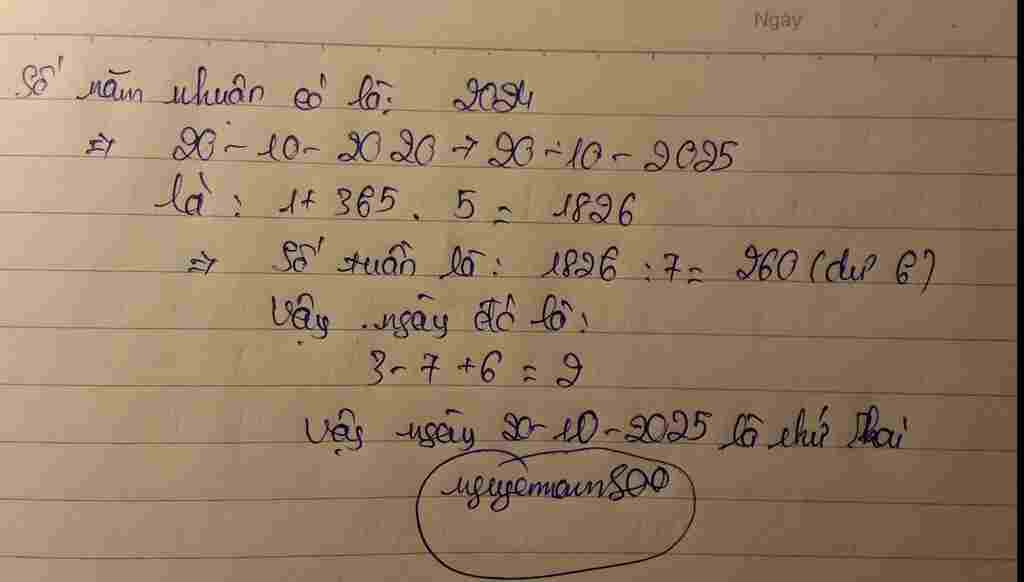 Ngày
Số năm nhuận có là: 2024
=> 20-10-2020 → 20-10-2025
là: 1+ 365. 5 = 1826
=> Số tuần là: 1826 : 7 = 260 (dư 6)
Vậy ngày đó là:
3 - 7 + 6 = 2
Vậy ngày 20-10-2025 là thứ hai